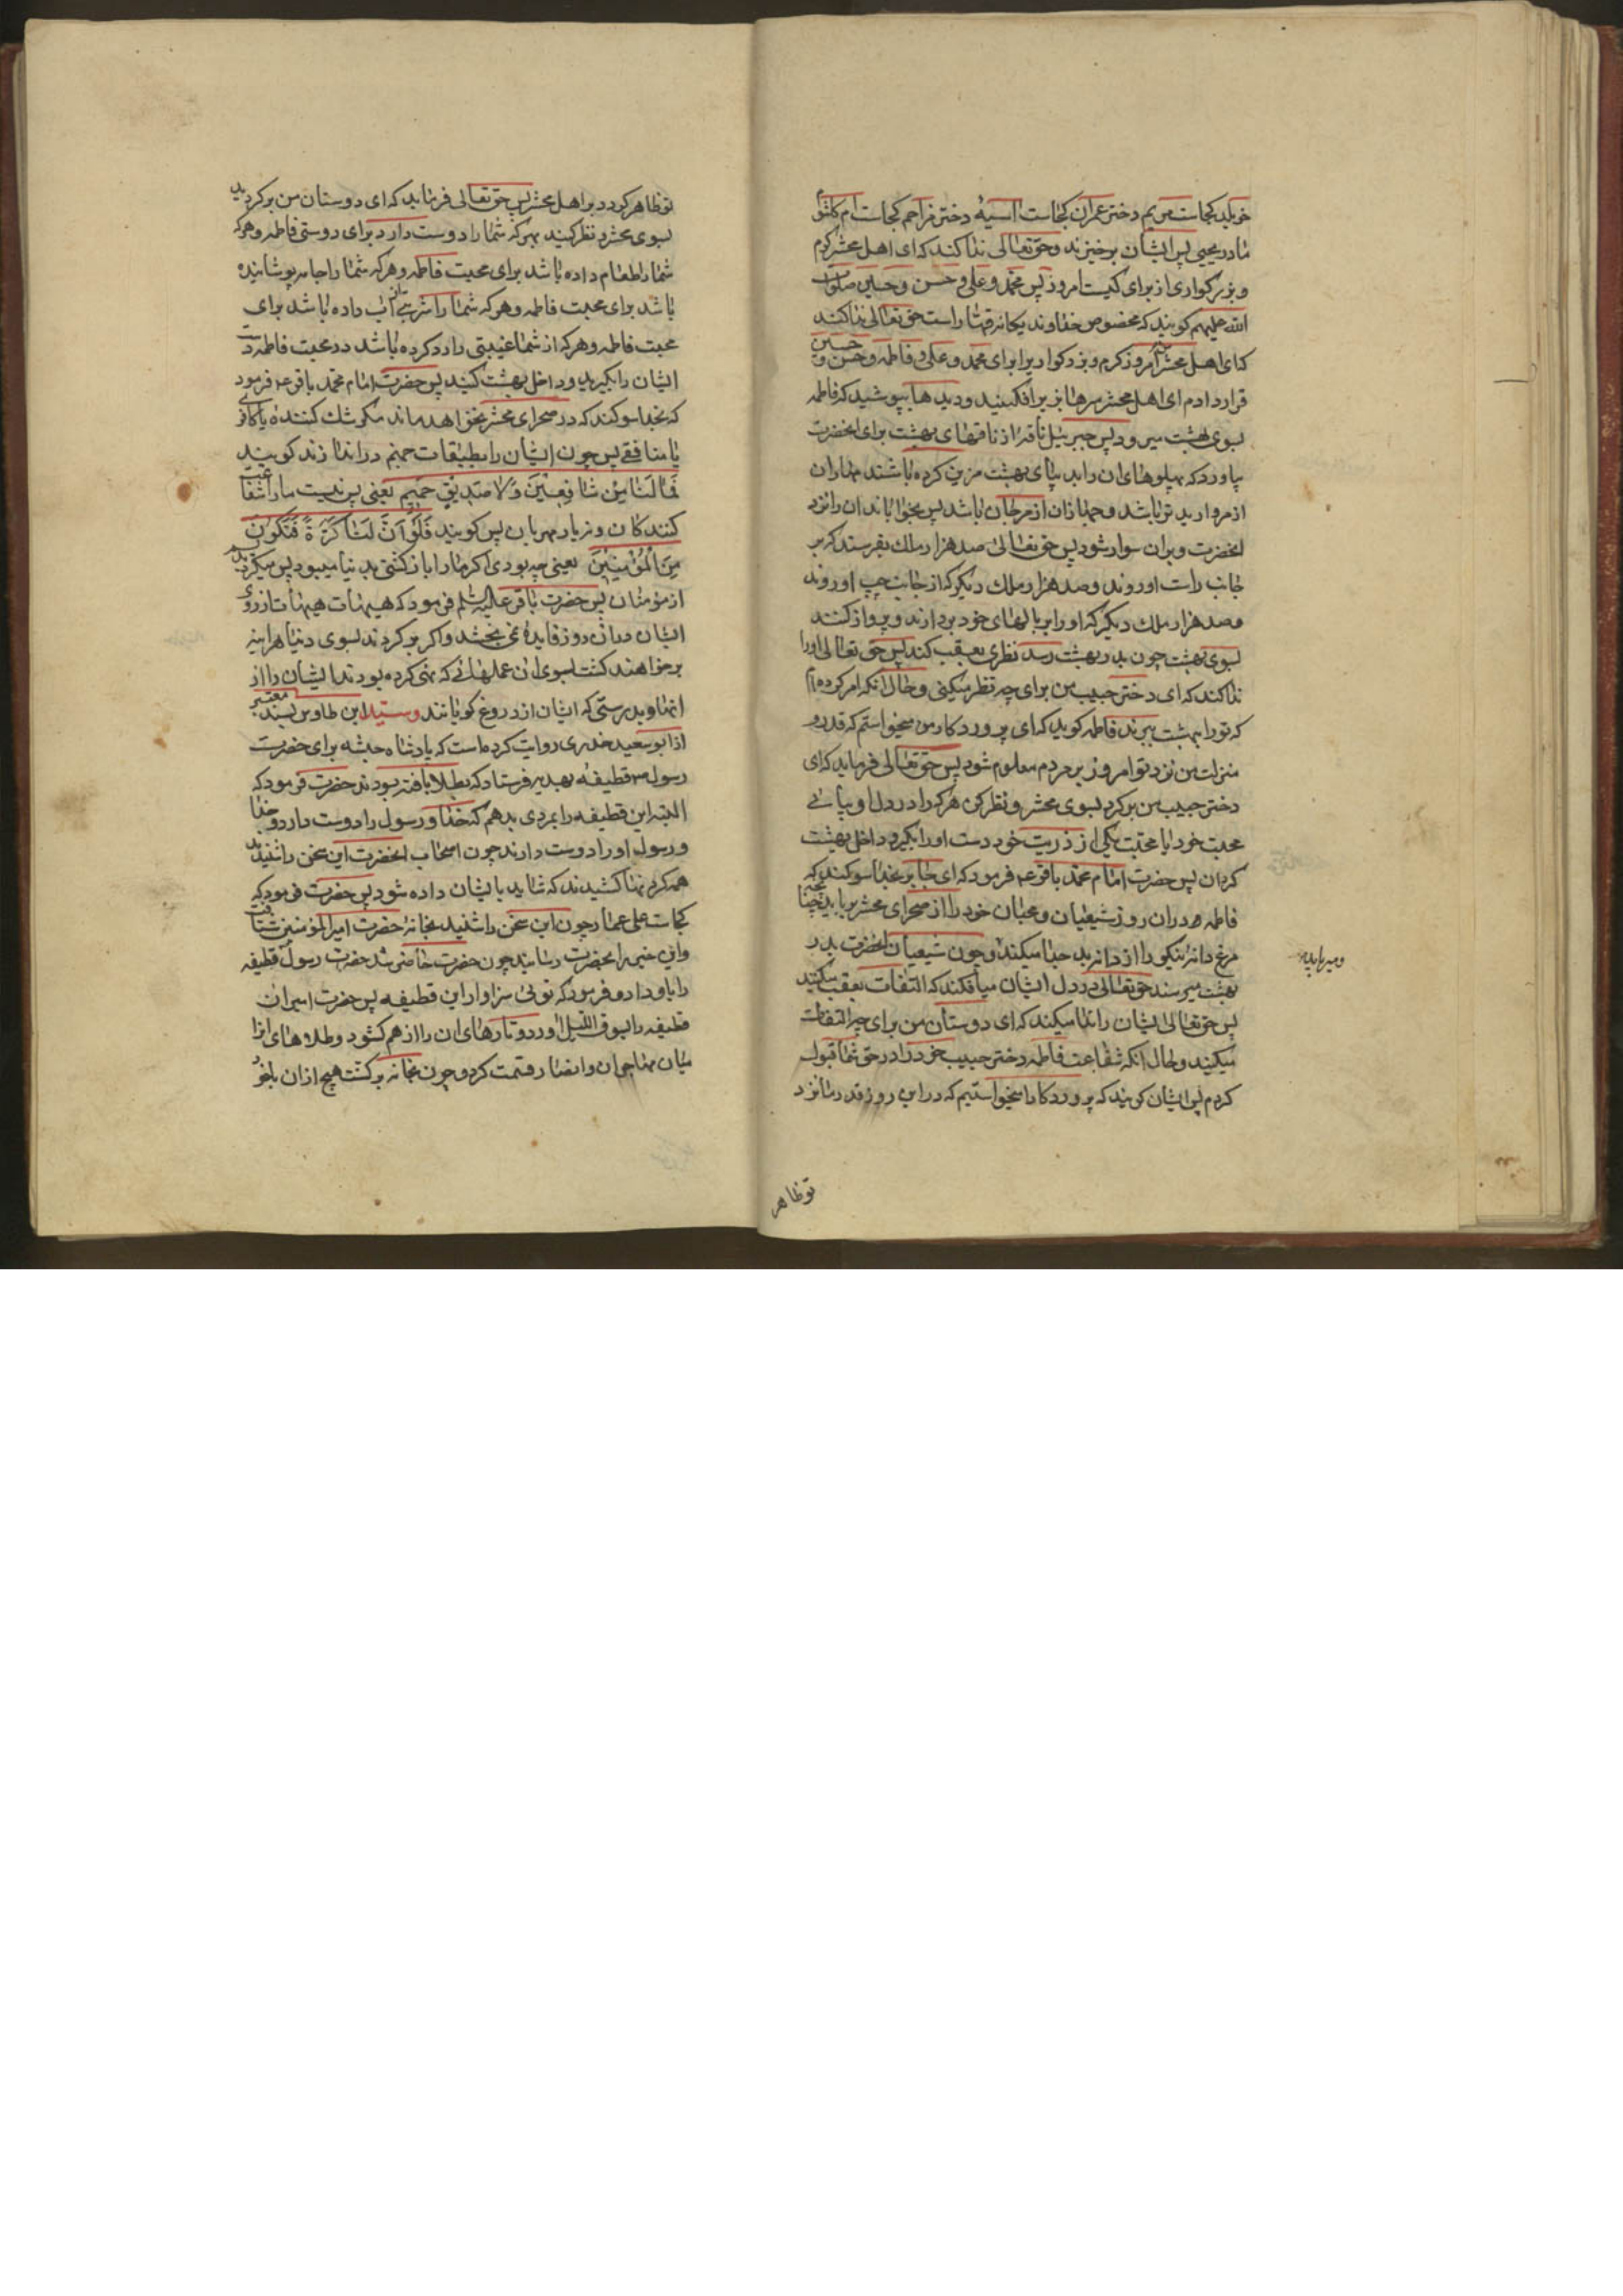 خویلد کجاست مریم دختر عمران کجاست اسیه دختر مزاحم کجاست ام کلثوم
مادر یحیی پس ایشان برخیزند و حق تعالی ندا کند که ای اهل محشر کرم
و بزرکواری از برای کیست امروز پس محمد و علی و حسن و حسین صلوات
الله علیهم کویند که مخصوص خداوند یکانه قهار است حق تعالی ندا کند
که ای اهل محشر من امروز کرم و بزرکواریرا برای محمد و علی و فاطمه و حسن و حسین
قرار دادم ای اهل محشر سرها بزیر افکنید و دیدها بپوشید که فاطمه
بسوی بهشت میرود پس جبرئیل ناقهٔ از ناقهای بهشت برای انحضرت
بیاورد که پهلوهای ان را بدیبای بهشت مزین کرده باشند مهار ان
از مروارید تر باشد و جهاز ان از مرجان باشد پس بخواباند ان را نزد
انحضرت و بران سوار شود پس حق تعالی صد هزار ملک بفرستد که بر
جانب راست او روند و صد هزار ملک دیکر که از جانب چپ او روند
و صد هزار ملک دیکر که او را بر بالهای خود بردارند و پرواز کنند
بسوی بهشت چون بدر بهشت رسد نظری بعقب کند پس حق تعالی او را
ندا کند که ای دختر حبیب من برای چه نظر میکنی و حال انکه امر کرده‌ام
که تو را ببهشت ببرند فاطمه کوید که ای پروردکار من میخواستم که قدر و
منزلت من نزد تو امروز بر مردم معلوم شود پس حق تعالی فرماید که ای
دختر حبیب من برکرد بسوی محشر و نظر کن هر که را در دل او بیابی
محبت خود یا محبت یکی از ذریت خود دست او را بکیر و داخل بهشت
کردان پس حضرت امام محمد باقر ع فرمود که ای جابر بخدا سوکند که
فاطمه در ان روز شیعیان و محبان خود را از صحرای محشر برباید چنانچه
مرغ دانه نیکو را از دانه بد جدا میکند و چون شیعیان انحضرت بدر
بهشت میرسند حق تعالی در دل ایشان میافکند که التفات بعقب میکنند
پس حق تعالی ایشان را ندا میکند که ای دوستان من برای چه التفات
میکنید و حال انکه شفاعت فاطمه دختر حبیب خود را در حق شما قبول
کردم پس ایشان کویند که پروردکارا میخواستیم که در این روز قدر ما نزد
تو ظاهر
تو ظاهر کردد بر اهل محشر پس حق تعالی فرماید که ای دوستان من برکردید
بسوی محشر و نظر کنید بهر که شما را دوست دارد برای دوستی فاطمه و هر که
شما را طعام داده باشد برای محبت فاطمه و هر که شما را جامه پوشانیده
باشد برای محبت فاطمه و هر که شما را شربتی از اب داده باشد برای
محبت فاطمه و هر که از شما غیبتی را رد کرده باشد در محبت فاطمه دست
ایشان را بکیرید و داخل بهشت کنید پس حضرت امام محمد باقر ع فرمود
که بخدا سوکند که در صحرای محشر نخواهد ماند مکر شک کننده یا کافری
یا منافقی پس چون ایشان را بطبقات جهنم در اندازند کویند
فَمَا لَنَا مِنْ شَافِعِینَ وَلَا صَدِیقٍ حَمِیمٍ یعنی پس نیست ما را شفاعت
کنندکان و نه یار مهربان پس کویند فَلَوْ اَنَّ لَنَا کَرَّةً فَنَکُونَ
مِنَ الْمُؤْمِنِینَ یعنی چه بودی اکر ما را بازکشتی بدنیا میبود پس میکردیدیم
از مؤمنان پس حضرت باقر علیه السلم فرمود که هیهات هیهات ارزوی
ایشان در ان روز فایدهٔ نمی بخشد و اکر برکردند بسوی دنیا هراینه
برخواهند کشت بسوی ان عملهائی که نهی کرده بودند ایشان را از
انها و بدرستی که ایشان از دروغ کویانند و سید ابن طاوس بسند معتبر
از ابو سعید خدری روایت کرده است که پادشاه حبشه برای حضرت
رسول ص قطیفه بهدیه فرستاد که بطلا بافته بودند حضرت فرمود که
البته این قطیفه را بمردی بدهم که خدا و رسول را دوست دارد و خدا
و رسول او را دوست دارند چون اصحاب انحضرت این سخن را شنیدند
همه کردنها کشیدند که شاید بایشان داده شود پس حضرت فرمود که
کجاست علی عمار چون این سخن را شنید بخانه حضرت امیر المؤمنین شتافت
و این خبر را بحضرت رسانید چون حضرت حاضر شد حضرت رسول قطیفه
را باو داد و فرمود که توئی سزاوار این قطیفه پس حضرت امیر ان
قطیفه را بسوق اللیل اورد و تارهای ان را از هم کشود و طلاهای انرا
میان مهاجران و انصار قسمت کرد و چون بخانه برکشت هیچ از ان با خود